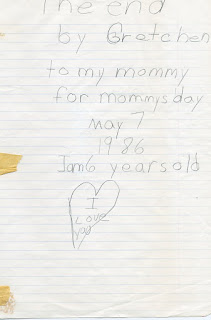 The end
by Gretchen
to my mommy
for mommys day
May 7
1986
Iam6 years old
I
Love
you